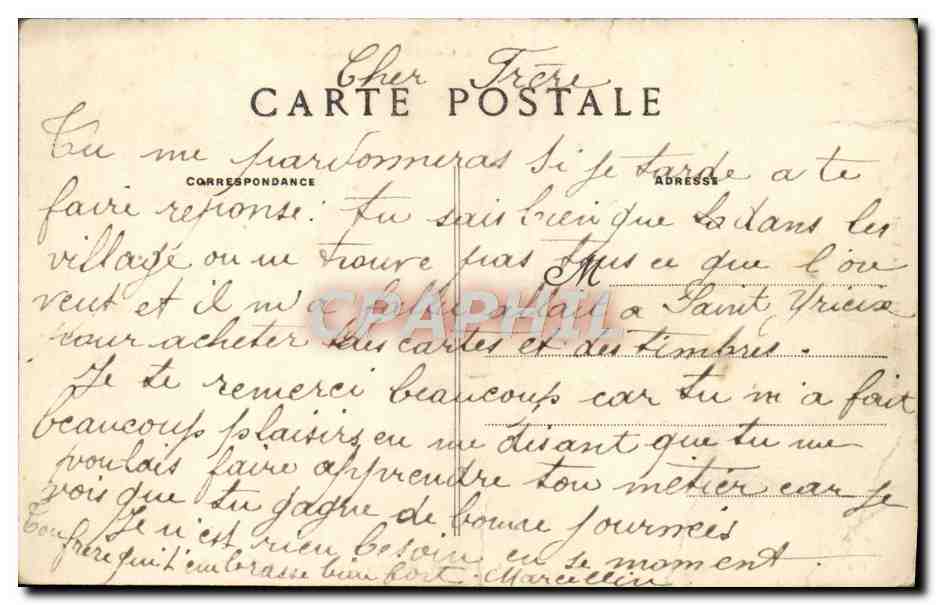 Cher Frère
CARTE POSTALE
Tu me pardonneras si je tarde a te
CORRESPONDANCE
ADRESSE
faire reponse : tu sais bien que dans les
village on ne trouve pas tous ce que l'on
M
veut et il m'a fallu allai a Saint Yrieix
CPAPHIL
pour acheter des cartes et des timbres.
Je te remerci beaucoup car tu m'a fait
beaucoup plaisirs en me disant que tu me
voulais faire apprendre ton métier car je
vois que tu gagne de bonne journeés
Je n'est rien besoin en se moment.
Ton frère qui t'embrasse bien fort. Marcellin